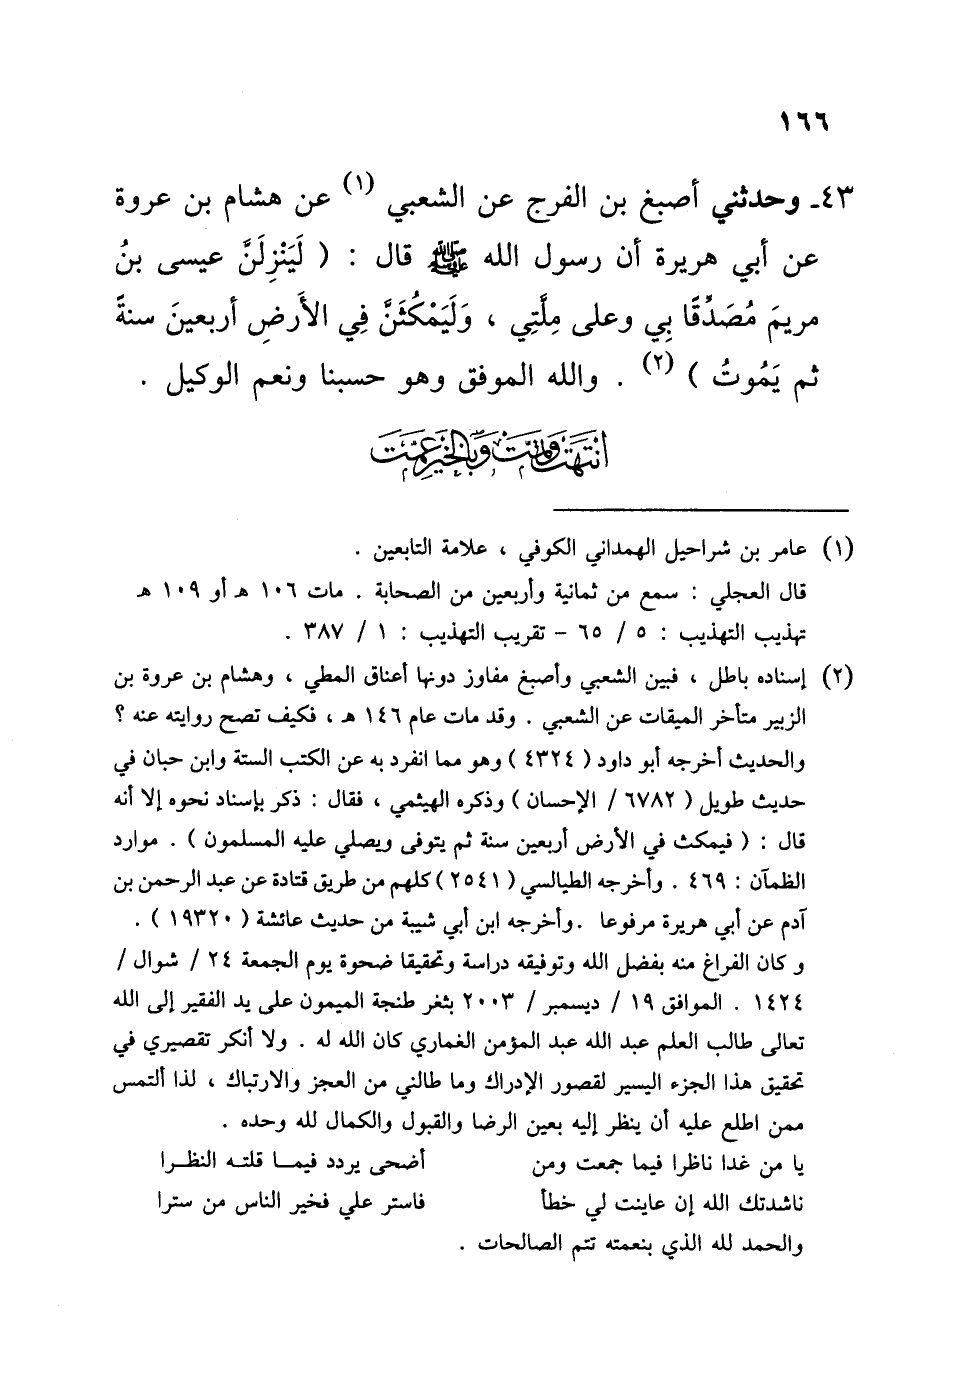 ١٦٦
٤٣ـ وحدثني أصبغ بن الفرج عن الشعبي (١) عن هشام بن عروة
عن أبي هريرة أن رسول الله ﷺ قال : ( لَيَنْزِلَنَّ عيسى بنُ
مريمَ مُصَدِّقًا بِي وعلى مِلَّتِي ، وَلَيَمْكُثَنَّ فِي الأَرضِ أربعينَ سنةً
ثم يَمُوتُ ) (٢) . والله الموفق وهو حسبنا ونعم الوكيل .
انتهت وتمت وبالخير عمت
(١) عامر بن شراحيل الهمداني الكوفي ، علامة التابعين .
قال العجلي : سمع من ثمانية وأربعين من الصحابة . مات ١٠٦ هـ أو ١٠٩ هـ
تهذيب التهذيب : ٥ / ٦٥ - تقريب التهذيب : ١ / ٣٨٧ .
(٢) إسناده باطل ، فبين الشعبي وأصبغ مفاوز دونها أعناق المطي ، وهشام بن عروة بن
الزبير متأخر الميقات عن الشعبي . وقد مات عام ١٤٦ هـ ، فكيف تصح روايته عنه ؟
والحديث أخرجه أبو داود ( ٤٣٢٤ ) وهو مما انفرد به عن الكتب الستة وابن حبان في
حديث طويل ( ٦٧٨٢ / الإحسان ) وذكره الهيثمي ، فقال : ذكر بإسناد نحوه إلا أنه
قال : ( فيمكث في الأرض أربعين سنة ثم يتوفى ويصلي عليه المسلمون ) . موارد
الظمآن : ٤٦٩ . وأخرجه الطيالسي ( ٢٥٤١ ) كلهم من طريق قتادة عن عبد الرحمن بن
آدم عن أبي هريرة مرفوعا .وأخرجه ابن أبي شيبة من حديث عائشة ( ١٩٣٢٠ ) .
و كان الفراغ منه بفضل الله وتوفيقه دراسة وتحقيقا ضحوة يوم الجمعة ٢٤ / شوال /
١٤٢٤ . الموافق ١٩ / ديسمبر / ٢٠٠٣ بثغر طنجة الميمون على يد الفقير إلى الله
تعالى طالب العلم عبد الله عبد المؤمن الغماري كان الله له . ولا أنكر تقصيري في
تحقيق هذا الجزء اليسير لقصور الإدراك وما طالني من العجز والارتباك ، لذا ألتمس
ممن اطلع عليه أن ينظر إليه بعين الرضا والقبول والكمال لله وحده .
يا من غدا ناظرا فيما جمعت ومن أضحى يردد فيمـا قلتـه النظـرا
ناشدتك الله إن عاينت لي خطأ فاستر علي فخير الناس من سترا
والحمد لله الذي بنعمته تتم الصالحات .